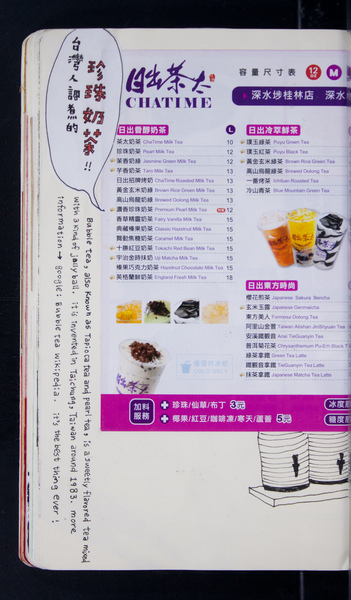 珍珠奶茶!!
台灣人調煮的
Bubble tea, also known as Tapioca tea and pearl tea, is a sweetly flavored tea mixed
with a kind of jelly ball. it is invented in Taichung, Taiwan around 1983. more
information → google: bubble tea wikipedia. it's the best thing ever!
日出茶太
CHATIME
容量尺寸表 12 M
深水埗桂林店
日出香醇奶茶 L
茶太奶茶 ChaTime Milk Tea 10
珍珠奶茶 Pearl Milk Tea 12
茉香奶綠 Jasmine Green Milk Tea 12
芋香奶茶 Taro Milk Tea 13
日出招牌烤奶 ChaTime Roasted Milk Tea 13
黃金玄米奶綠 Brown Rice Green Milk Tea 13
高山烏龍奶綠 Brewed Oolong Milk Tea 13
濃香珍珠奶茶 Premium Pearl Milk Tea 12
香草精靈奶茶 Fairy Vanilla Milk Tea 15
典藏榛果奶茶 Classic Hazelnut Milk Tea 15
舞動焦糖奶茶 Caramel Milk Tea 15
十勝紅豆奶茶 Tokachi Red Bean Milk Tea 15
宇治金時抹奶 Uji Matcha Milk Tea 15
榛果巧克力奶茶 Hazelnut Chocolate Milk Tea 15
英格蘭鮮奶茶 England Fresh Milk Tea 18
日出冷萃鮮茶
璞玉綠茶 Puyu Green Tea
璞玉紅茶 Puyu Black Tea
黃金玄米綠茶 Brown Rice Green Tea
高山烏龍綠茶 Brewed Oolong Tea
一番烤茶 Ichiban Roasted Tea
冷山青茶 Blue Mountain Green Tea
日出東方時尚
櫻花煎茶 Japanese Sakura Sencha
玄米玉露 Japanese Genmaicha
東方美人 Formosa Oolong Tea
阿里山金萱 Taiwan Alishan JinShyuan Tea
安溪鐵觀音 Anxi TieGuanyin Tea
普洱菊花茶 Chrysanthemum Pu-Erh Black T
綠茶拿鐵 Green Tea Latte
鐵觀音拿鐵 TieGuanyin Tea Latte
抹茶拿鐵 Japanese Matcha Tea Latte
加料服務
+ 珍珠/仙草/布丁 3元
+ 椰果/紅豆/咖啡凍/寒天/蘆薈 5元
冰度
糖度